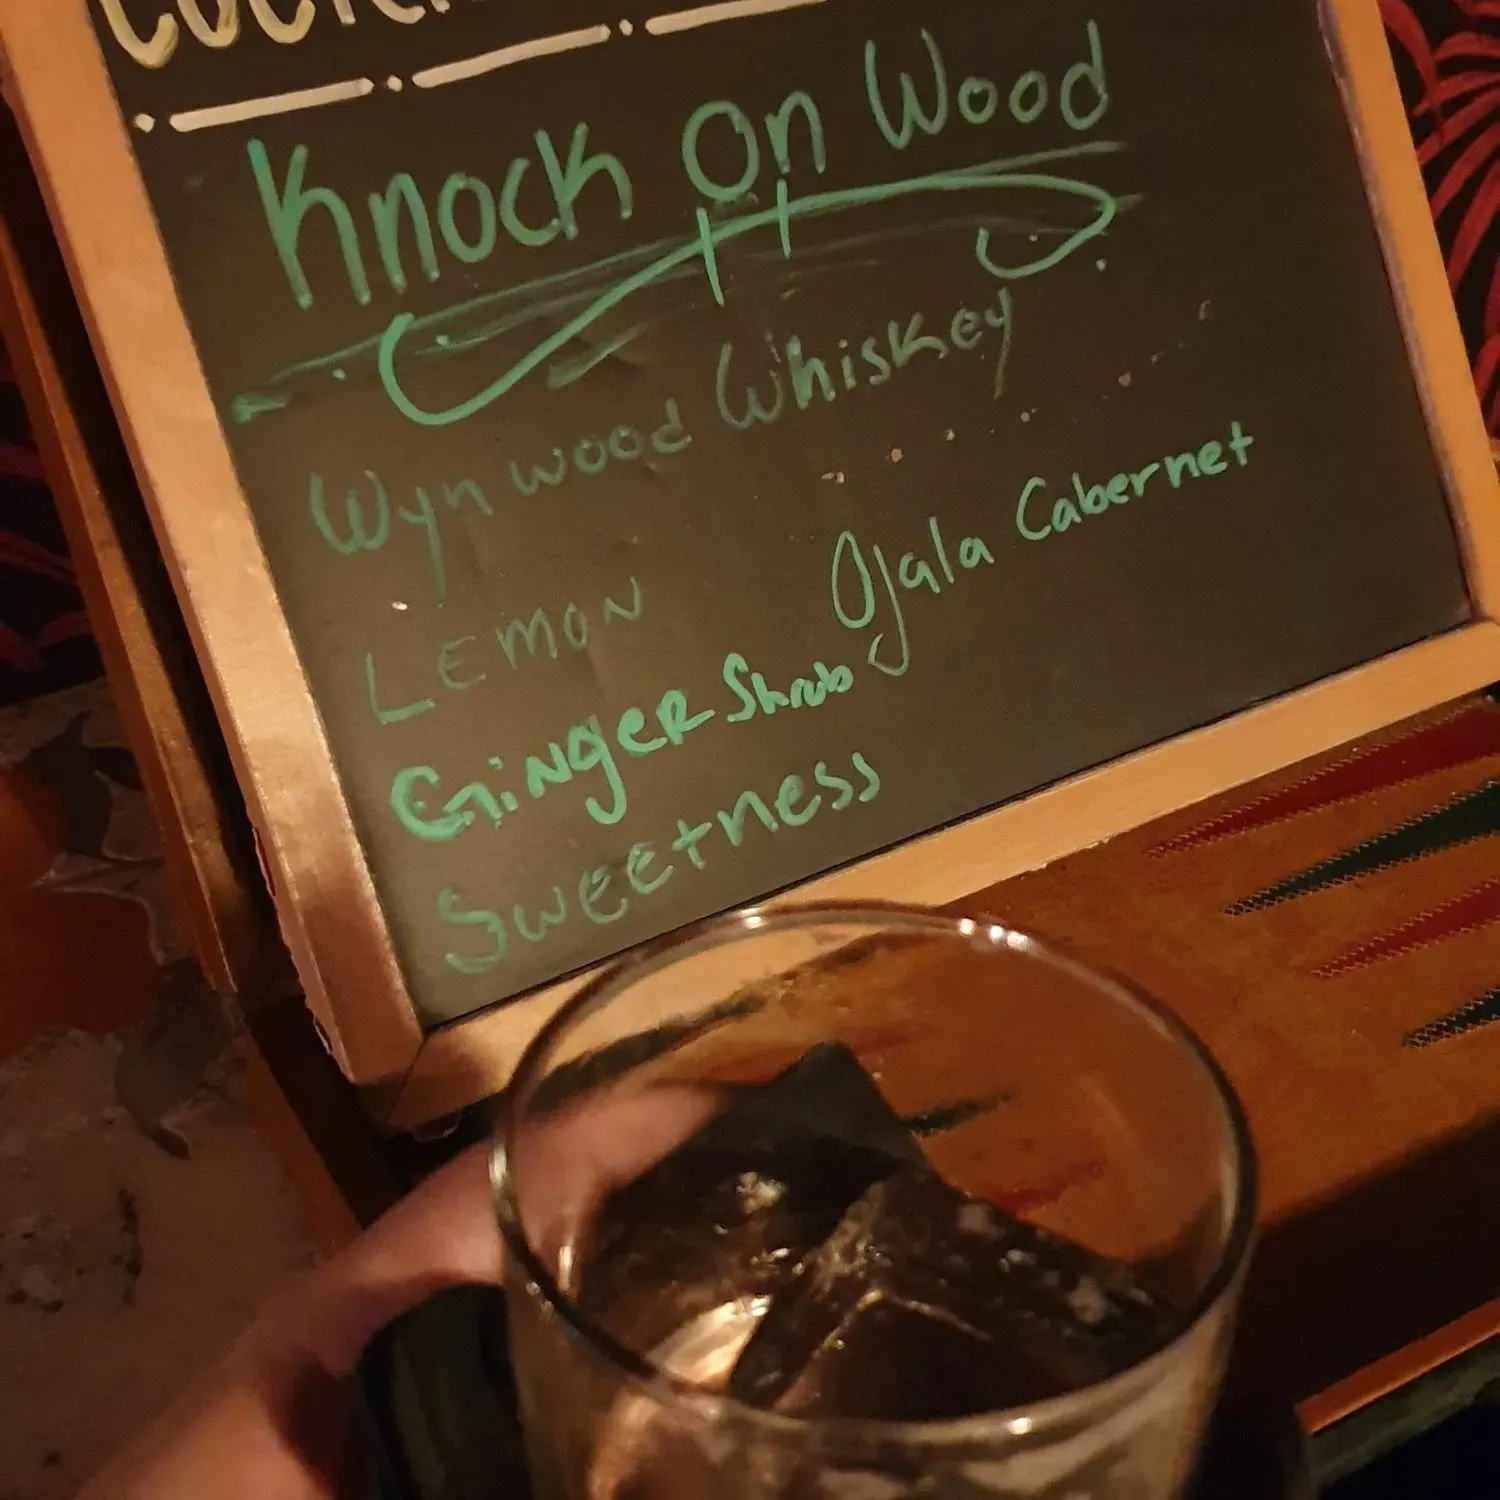 Knock On Wood
Wynwood Whiskey
LEMON
Ojala Cabernet
GiNgER Shrub
SwEEtness